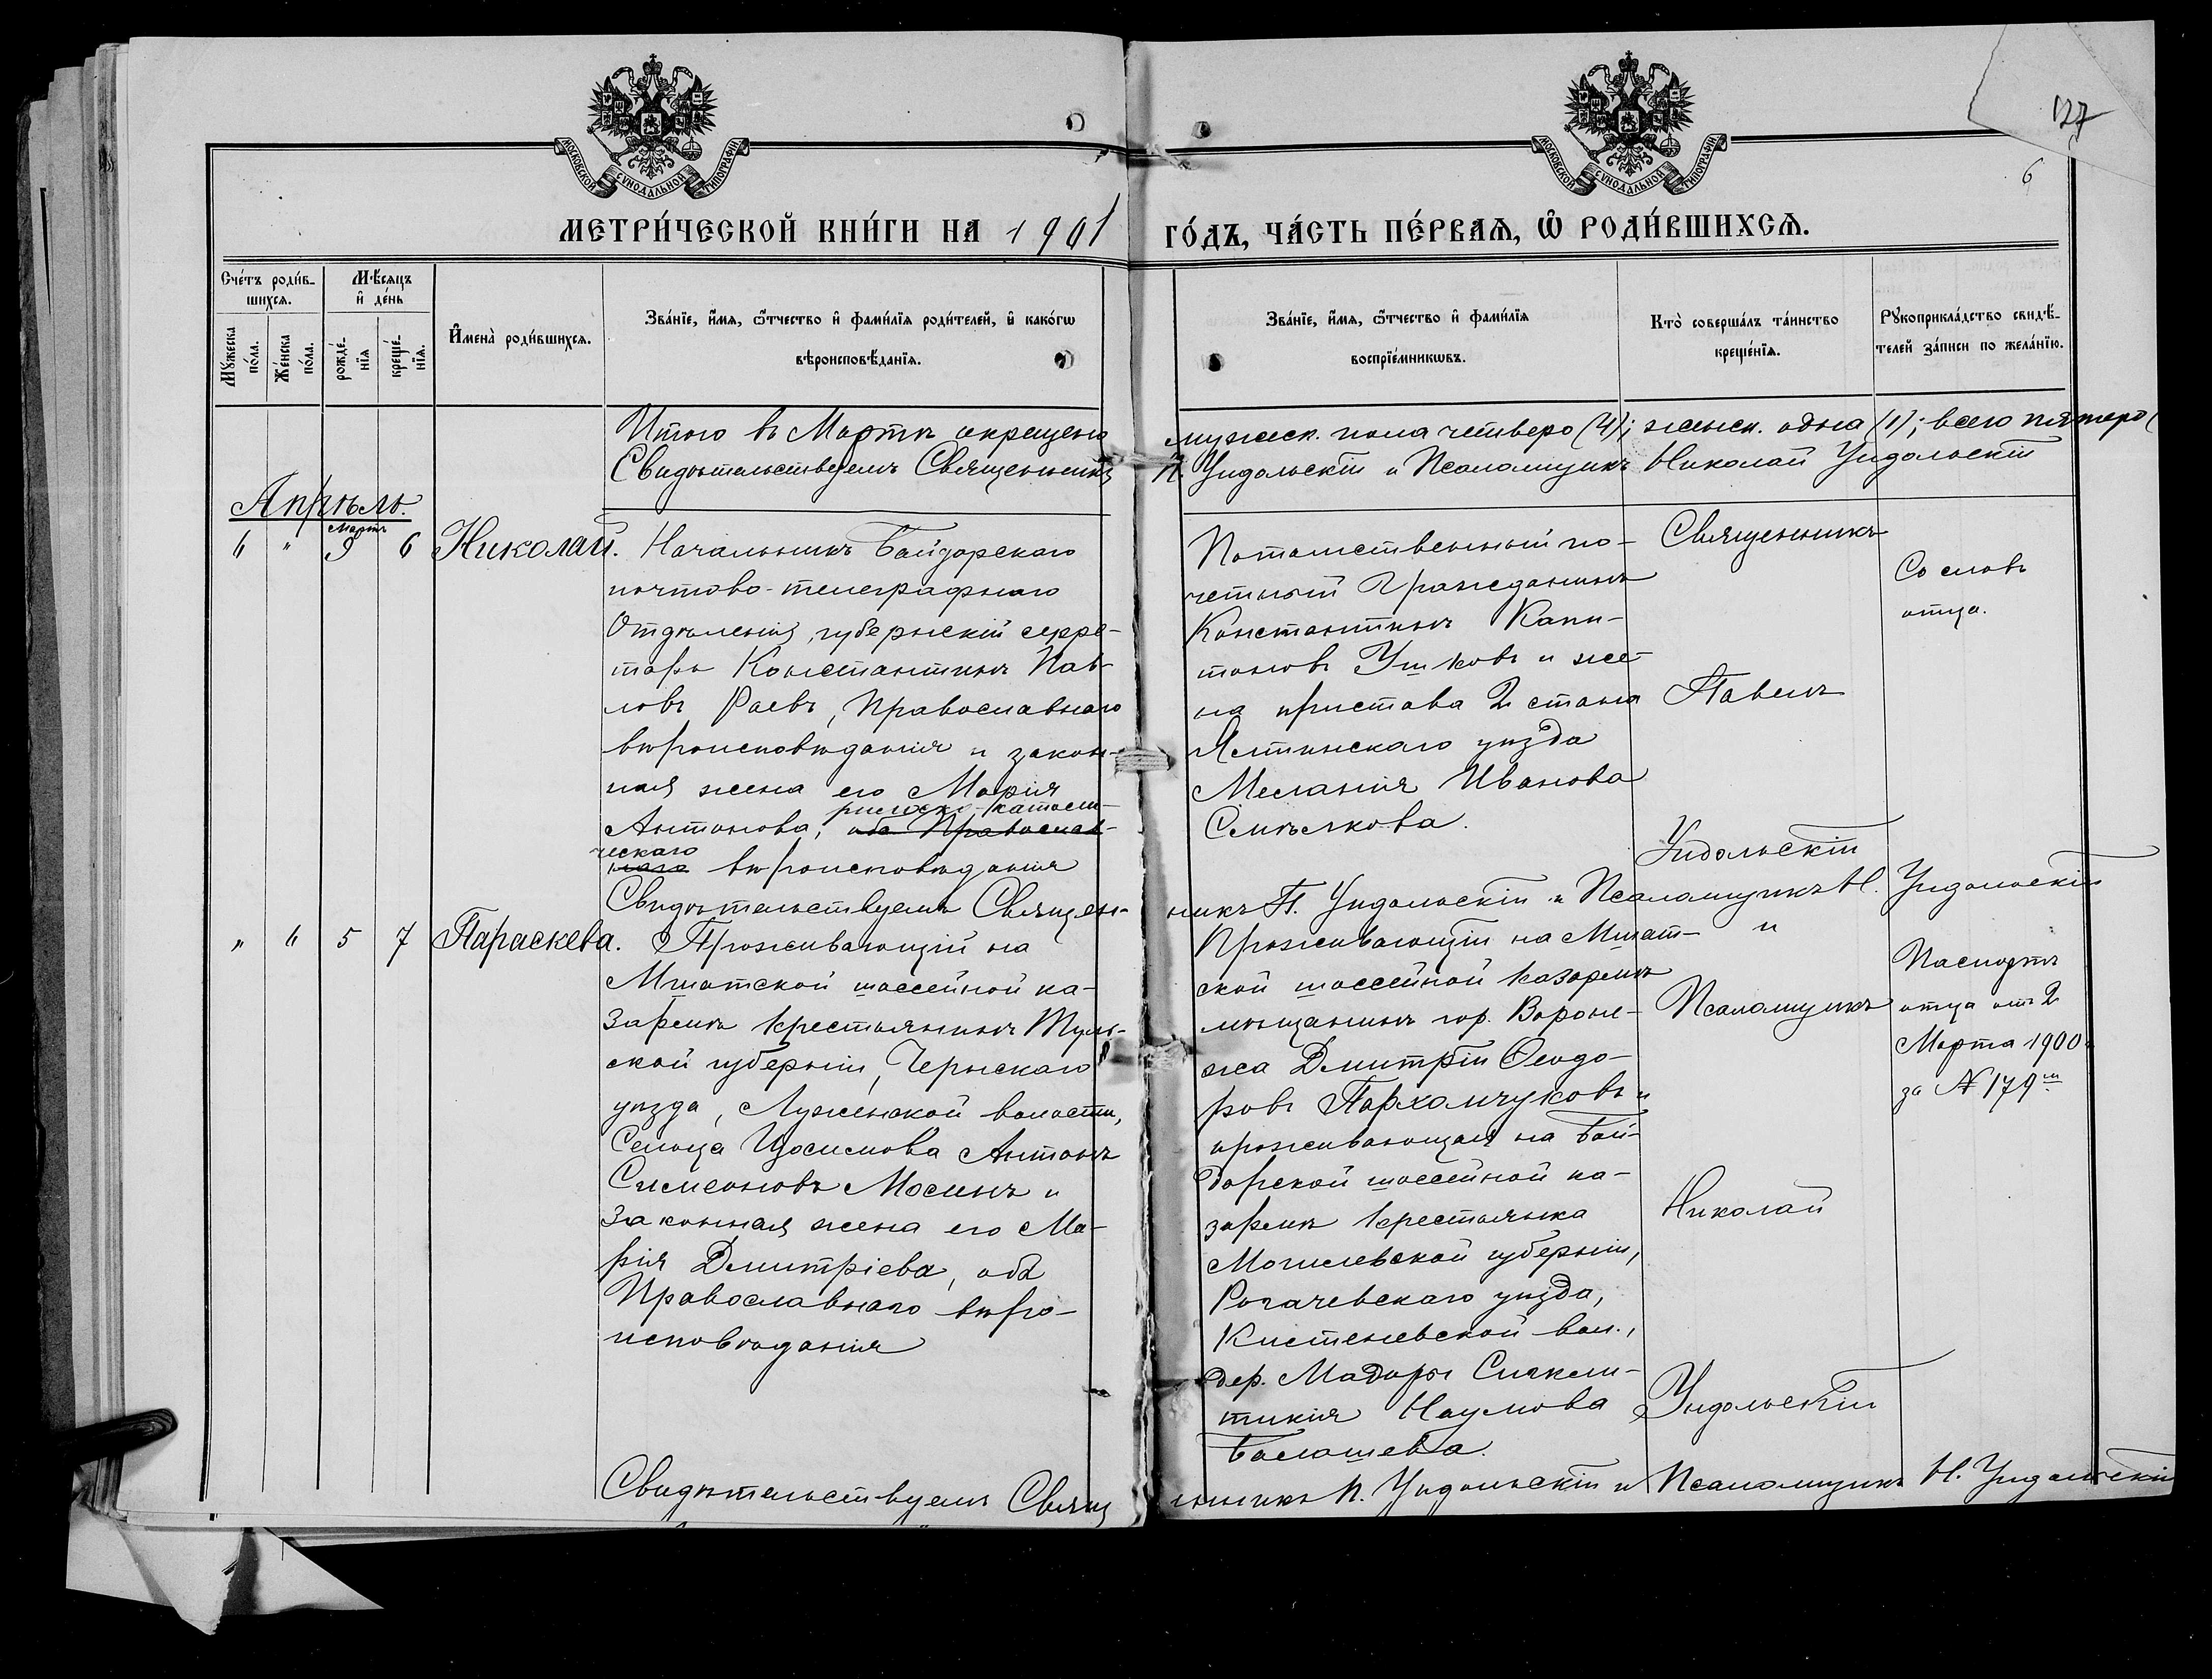 127
6
МОСКОВСКОЙ СѴНОДАЛЬНОЙ ТИПОГРАФІИ
МОСКОВСКОЙ СѴНОДАЛЬНОЙ ТИПОГРАФІИ
МЕТРИ́ЧЕСКОЙ КНИ́ГИ НА 1901 ГО́ДЪ, ЧА́СТЬ ПЕ́РВАѦ, Ѽ РОДИ́ВШИХСѦ.
Сче́тъ роди́в-
шихсѧ.
Мꙋ́жеска
по́ла.
Же́нска
по́ла.
Мѣ́сяцъ
и҆ де́нь
рожде́-
нїѧ
креще́-
нїѧ.
И҆мена̀ роди́вшихсѧ.
Зва́нїе, и҆́мѧ, ѻ҆́тчество и҆ фами́лїѧ роди́телей, и҆ како́гѡ
вѣроисповѣ́данїѧ.
Зва́нїе, и҆́мѧ, ѻ҆́тчество и҆ фами́лїѧ
воспрїе́мникѡвъ.
Кто̀ соверша́лъ та́инство
креще́нїѧ.
Рꙋкоприкла́дство свидѣ́-
телей за́писи по жела́нїю.
Итого въ Мартѣ окрещено мужеск. пола четверо (4); женск. одна (1); всего пятеро (
Свидѣтельствуемъ Священникъ П. Ундольскій и Псаломщикъ Николай Ундольскій
Апрѣль.
Мартъ
6 " 9 6 Николай.
Начальникъ Байдарскаго
почтово-телеграфнаго
Отдѣленія, губернскій секре-
тарь Константинъ Пав-
ловъ Раевъ, Православнаго
вѣроисповѣданія и закон-
ная жена его Марія
римско-католи-
Антонова, оба Православ-
ческаго
наго вѣроисповѣданія
Потомственный по-
четный Гражданинъ
Константинъ Капи-
тоновъ Ушковъ и же-
на пристава 2 стана
Ялтинскаго уѣзда
Меланія Иванова
Семѣлкова.
Священникъ
Павелъ
Ундольскій
Со словъ
отца.
Свидѣтельствуемъ Священникъ П. Ундольскій и Псаломщикъ Н. Ундольскій
" 6 5 7 Параскева.
Проживающій на
Мшатской шоссейной ка-
зармѣ крестьянинъ Туль-
ской губерніи, Чернскаго
уѣзда, Луженской волости,
Сельца Антонъ
Симеоновъ Мосинъ и
Законная жена его Ма-
рія Димитріева, оба
Православнаго вѣро-
исповѣданія
Проживающій на Мшат-
ской шоссейной казармѣ
мѣщанинъ гор. Вороне-
жа Димитрій Ѳеодо-
ровъ Пархомчуковъ и
проживающая на Бай-
дарской шоссейной ка-
зармѣ крестьянка
Могилевской губерніи,
Рогачевскаго уѣзда,
Кистеневской вол.,
дер. Мадоры Синкли-
тикія Наумова
Балашева.
и
Псаломщикъ
Николай
Ундольскій
Паспортъ
отца отъ 2
Марта 1900
за № 179
Свидѣтельствуемъ Свящ
нникъ П. Ундольскій и Псаломщикъ Н. Ундольскій